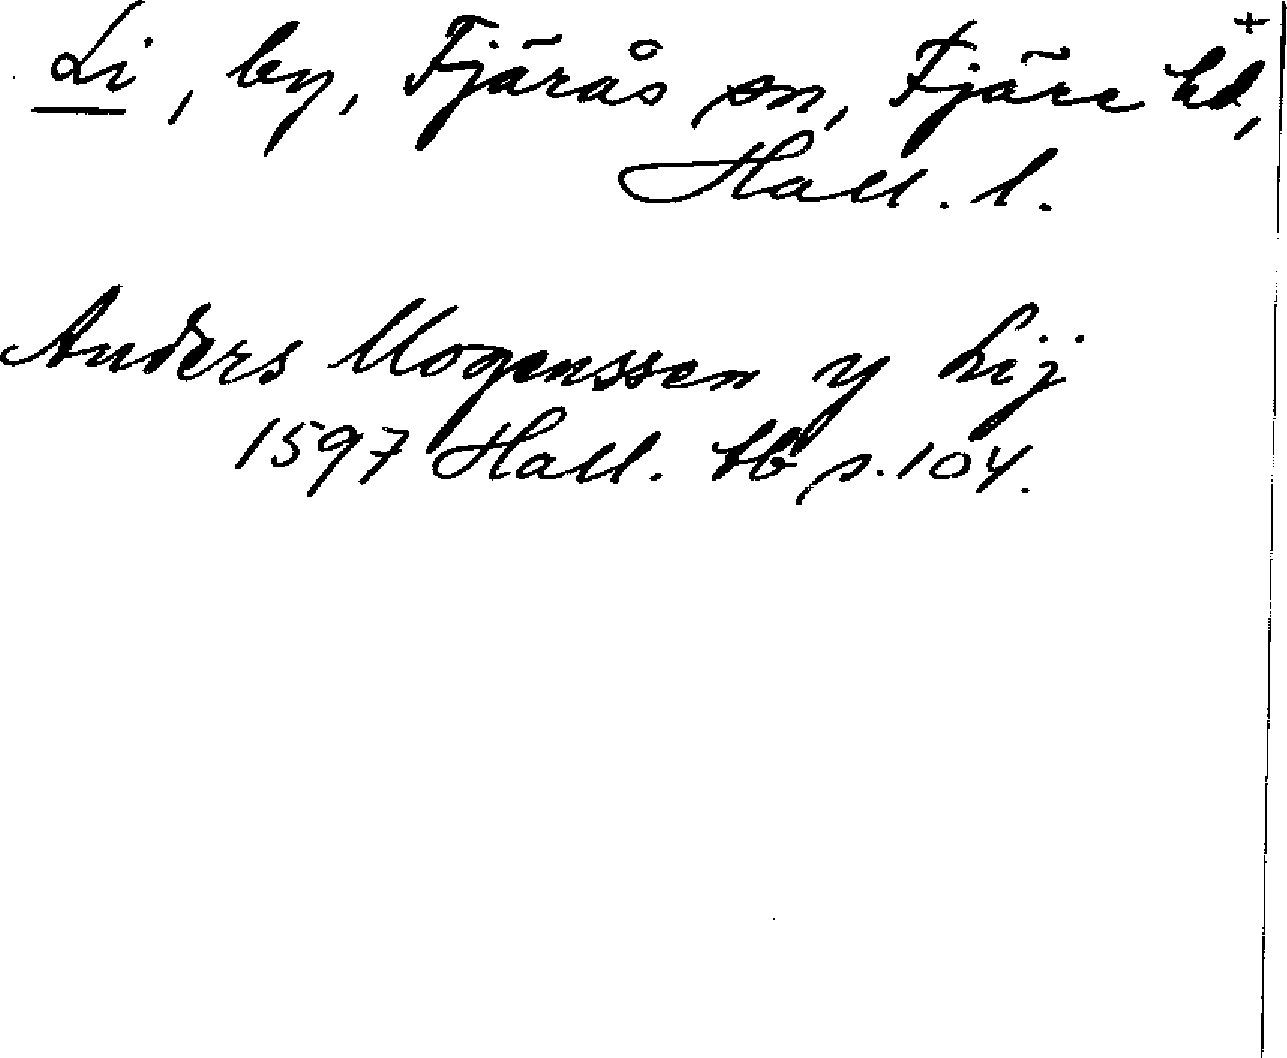 +
Li, by, Fjärås sn, Fjäre hd,
Hall. l.
Anders Mogenssen y Lij
1597 Hall. tb s. 104.